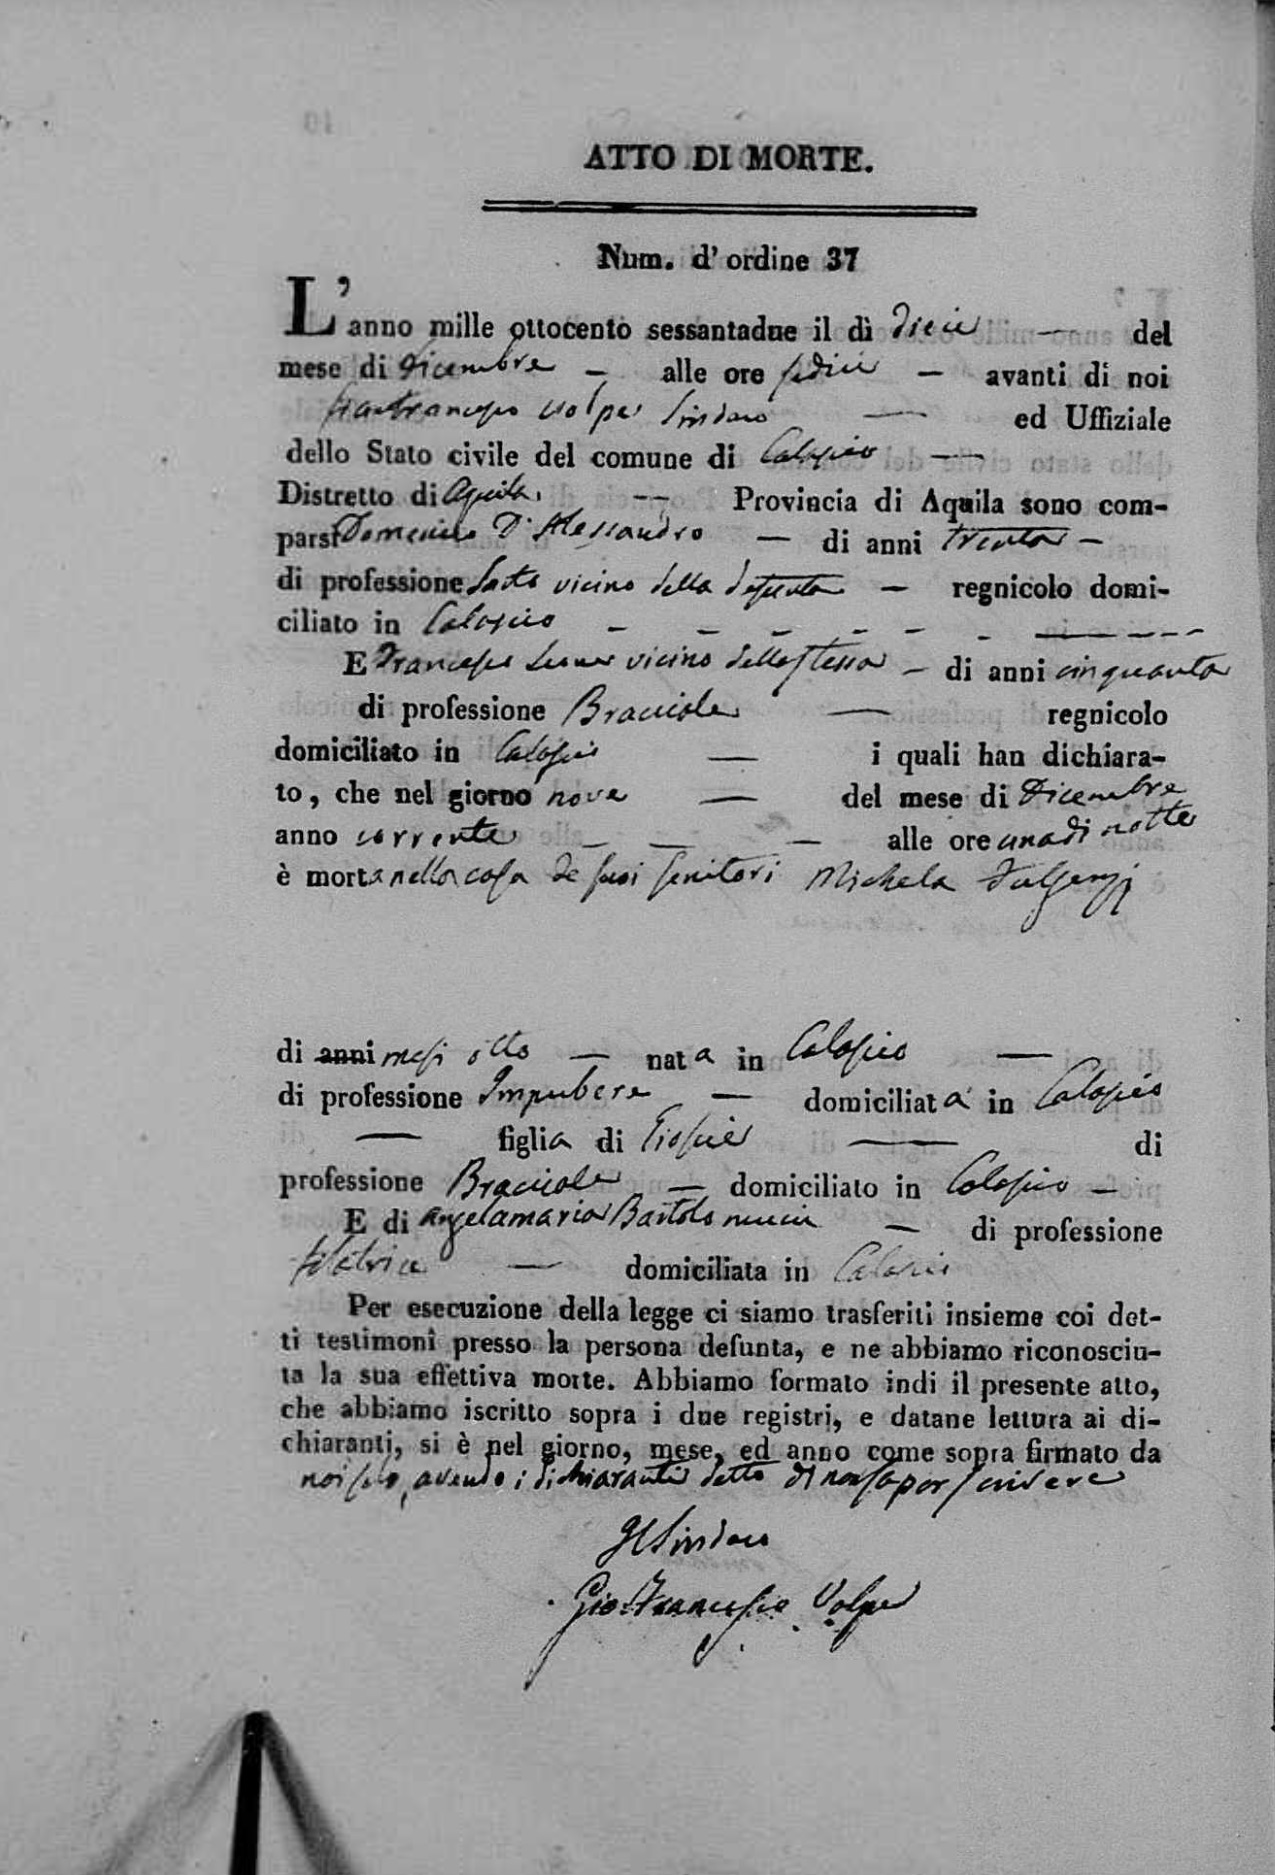 ATTO DI MORTE.
Num. d' ordine 37
L' anno mille ottocento sessantadue il dì dieci — del
mese di Dicembre — alle ore sedici — avanti di noi
Gianfrancesco Volpe Sindaco — ed Uffiziale
dello Stato civile del comune di Calascio —
Distretto di Aquila. — Provincia di Aquila sono com-
parsi Domenico D'Alessandro — di anni trenta —
di professione Sarto vicino della defunta — regnicolo domi-
ciliato in Calascio — — — — — — — — — —
E Francesco vicino della stessa — di anni cinquanta
di professione Bracciale — regnicolo
domiciliato in Calascio — i quali han dichiara-
to, che nel giorno nove — del mese di Dicembre
anno corrente — — — alle ore una di notte
è morta nella casa de suoi genitori Michela Fulgenzj
di anni mesi otto — nata in Calascio —
di professione Impubere — domiciliata in Calascio
— figlia di Giosuè — di
professione Bracciale — domiciliato in Calascio —
E di Angelamaria Bartolomucci — di professione
filatrice — domiciliata in Calascio
Per esecuzione della legge ci siamo trasferiti insieme coi det-
ti testimonî presso la persona defunta, e ne abbiamo riconosciu-
ta la sua effettiva morte. Abbiamo formato indi il presente atto,
che abbiamo iscritto sopra i due registri, e datane lettura ai di-
chiaranti, si è nel giorno, mese, ed anno come sopra firmato da
noi solo, avendo i dichiaranti detto di non saper scrivere
Il Sindaco
Gio: Francesco Volpe